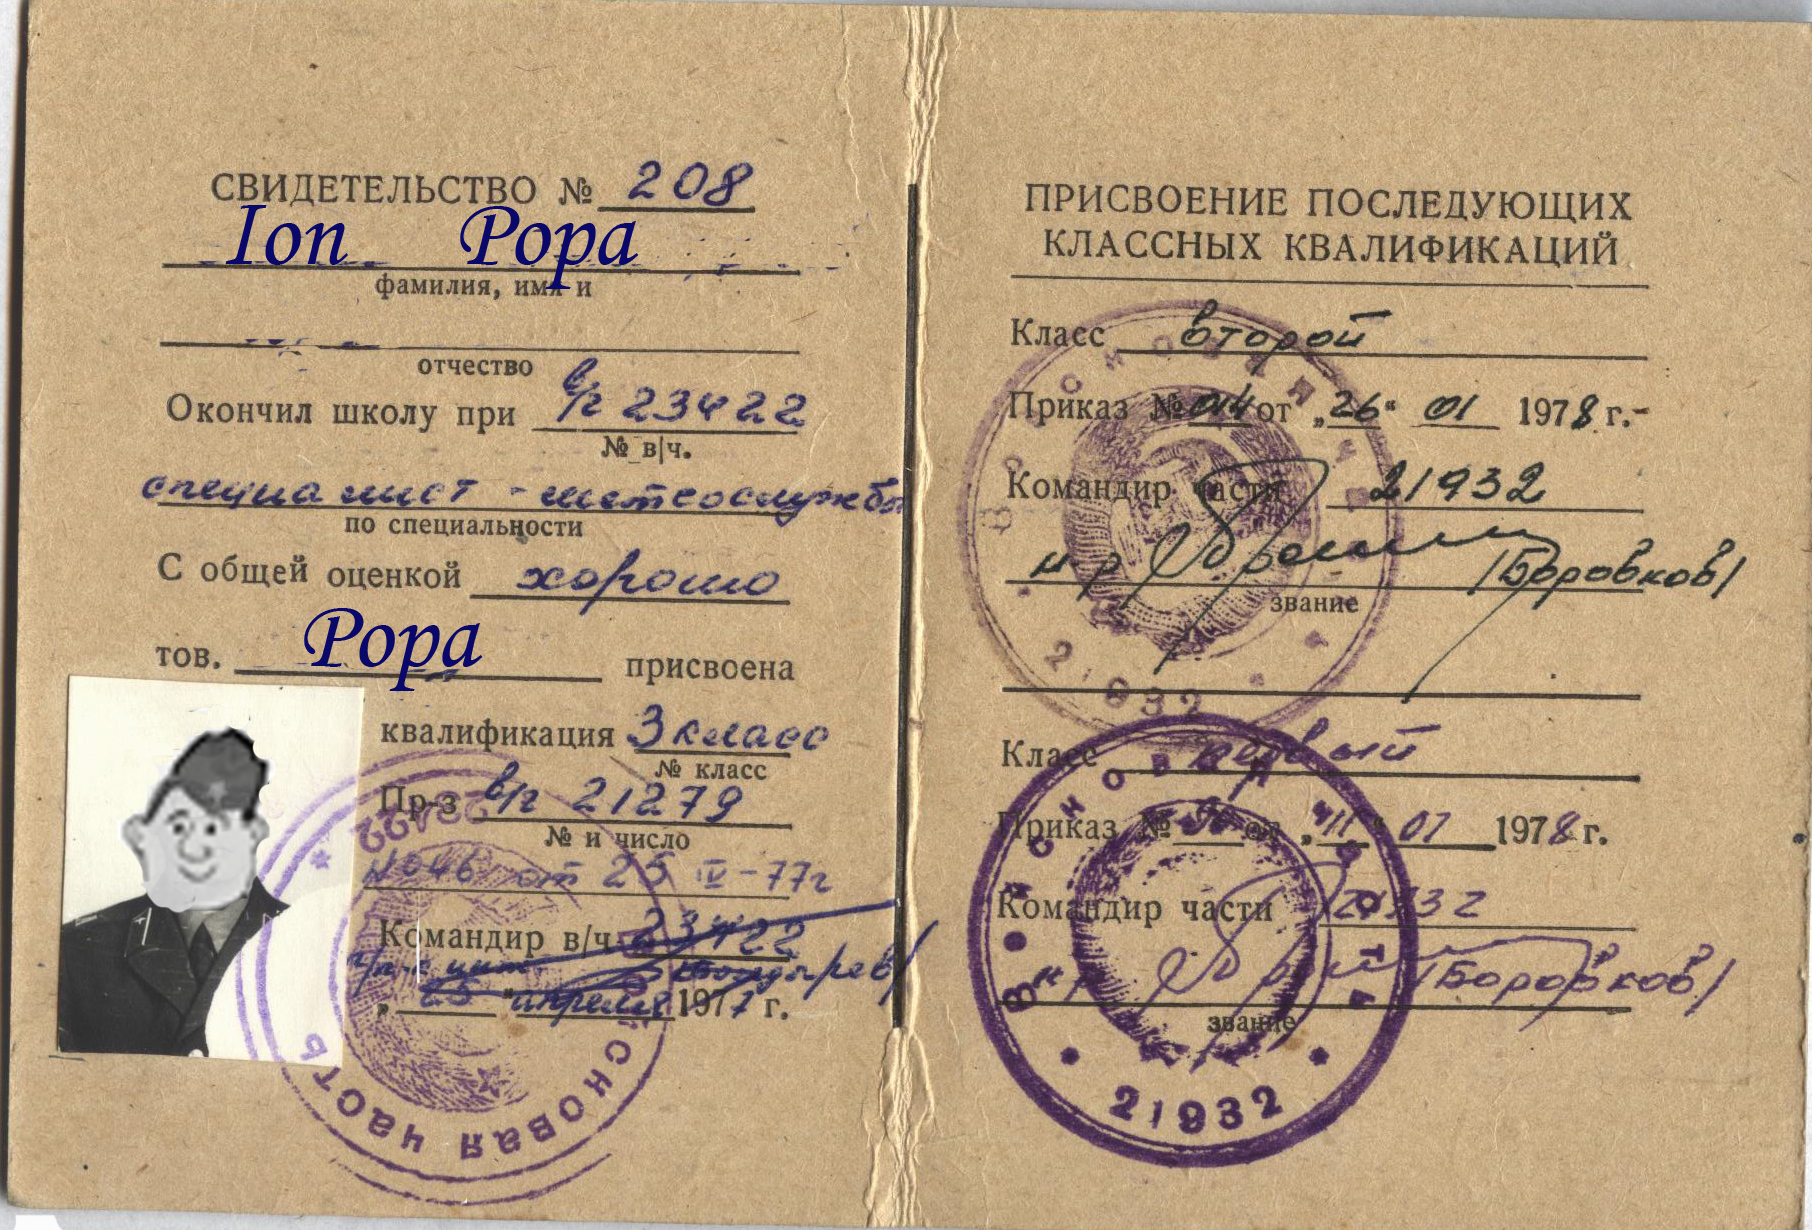 СВИДЕТЕЛЬСТВО № 208
Ion Popa
фамилия, имя и
отчество
Окончил школу при в/ч 23422
№ в/ч.
специалист - метеослужбы
по специальности
С общей оценкой хорошо
тов. Popa присвоена
квалификация 3 класс
№ класс
Пр-з в/ч 21279
№ и число
№046 от 25 IV-77г
Командир в/ч 23422
„25" апреля 1977 г.
23422
ВОЙСКОВАЯ ЧАСТЬ
ПРИСВОЕНИЕ ПОСЛЕДУЮЩИХ
КЛАССНЫХ КВАЛИФИКАЦИЙ
Класс второй
Приказ № 014 от „26" 01 1978 г.-
Командир части 21932
/Боровков/
звание
ВОЙСКОВАЯ ЧАСТЬ
21932
Класс первый
Приказ № от „11" 07 1978 г.
Командир части 21932
/Боровков/
звание
ВОЙСКОВАЯ ЧАСТЬ
21932